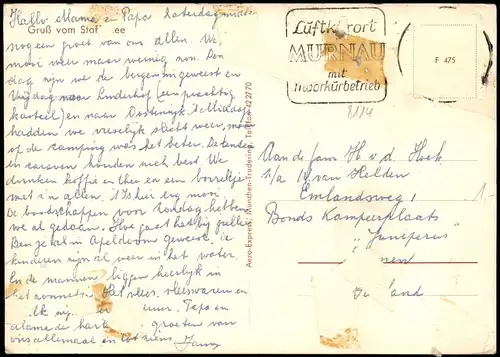 Gruß vom Staf ee
Hallo Mama en Papa Zaterdagmidden
nog een groet van ons allen. We
mooi weer maar weinig zon. Don
dag zijn we de bergen ingeweest en
Vrijdag naar Linderhof (een prachtig
kasteel) en naar Oostenrijk. 's Middags
hadden we vreselijk slecht weer, maar
op de camping was het beter. De tenten
en caravan houden zich best. We
drinken koffie en thee en een borreltje
met z'n allen. 't Is hier erg mooi.
De boodschappen voor Zondag hebben
we al gedaan. Hoe gaat het bij jullie.
Ben je al in Apeldoorn geweest. De
kinderen zijn al weer in het water.
En de mannen liggen heerlijk in
het zonnetje. Het vlees, vleeswaren en
Papa en
Mama de harte groeten van
ons allemaal en tot ziens Janny
Aero-Express, München-Trudering, Telefon 422770
Luftkurort
MURNAU
mit
Moorkurbetrieb
8114
F 475
Aan de fam H v.d. Hoek
p/a W van Helden
Emlandsweg 1
Bonds Kampeerplaats
"Juniperus"